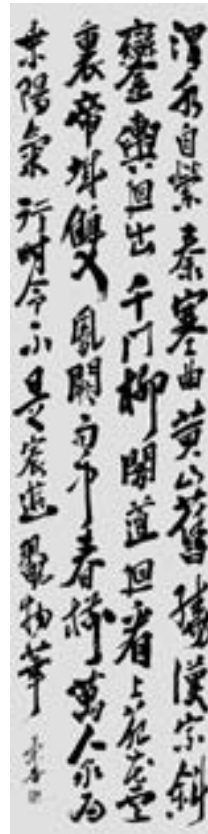 渭水自縈秦塞曲黃山舊繞漢宮斜
鑾輿迥出千門柳閣道迴看上苑花雲
裏帝城雙鳳闕雨中春樹萬人家為
乘陽氣行時令不是宸遊翫物華